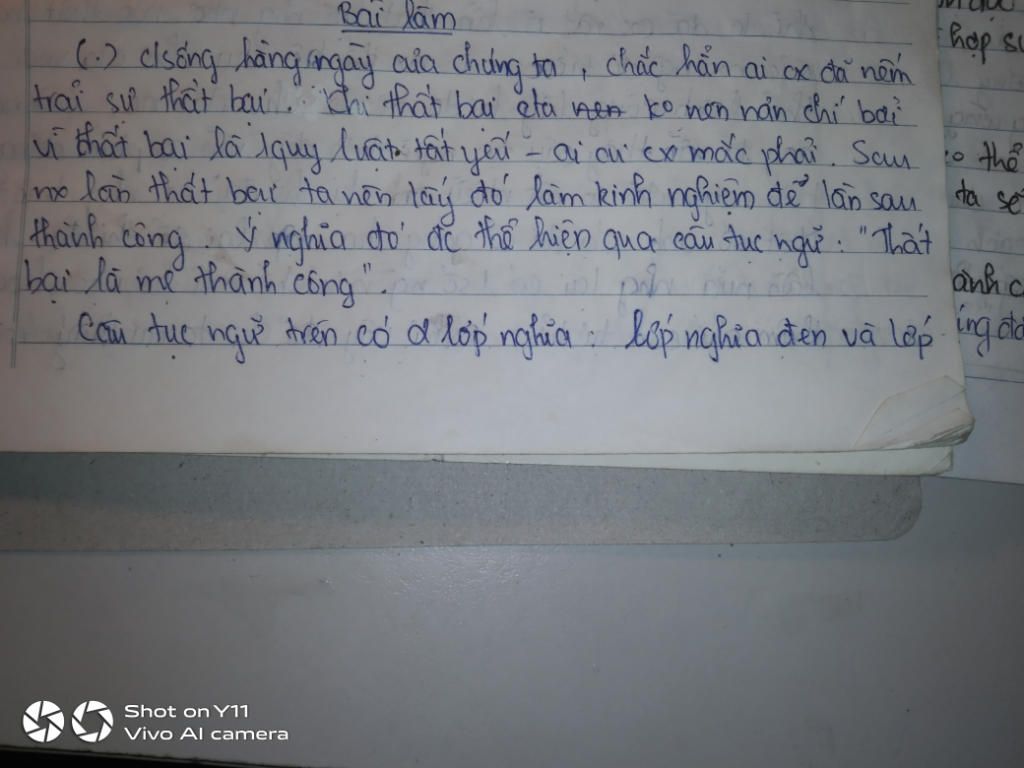 Bài làm
(.) clsống hàng ngày của chúng ta, chắc hẳn ai cx đã nếm
trải sự thất bại. Khi thất bại cta nên ko nên nản chí bởi
vì thất bại là 1 quy luật tất yếu - ai cx mắc phải. Sau
lần thất bại ta nên lấy đó làm kinh nghiệm để lần sau
thành công. Ý nghĩa đó đc thể hiện qua câu tục ngữ: "Thất
bại là mẹ thành công".
Câu tục ngữ trên có 2 lớp nghĩa: lớp nghĩa đen và lớp
hợp sứ
thể
ta sẽ
ành c
Shot on Y11
Vivo AI camera